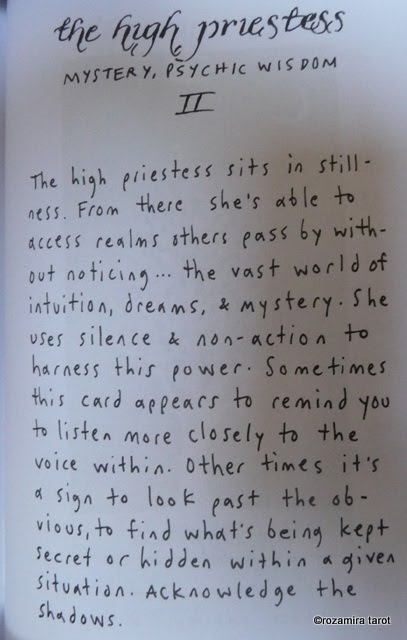 the high priestess
MYSTERY, PSYCHIC WISDOM
II
The high priestess sits in still-
ness. From there she's able to
access realms others pass by with-
out noticing... the vast world of
intuition, dreams, & mystery. She
uses silence & non-action to
harness this power. Sometimes
this card appears to remind you
to listen more closely to the
voice within. Other times it's
a sign to look past the ob-
vious, to find what's being kept
secret or hidden within a given
situation. Acknowledge the
shadows.
©rozamira tarot